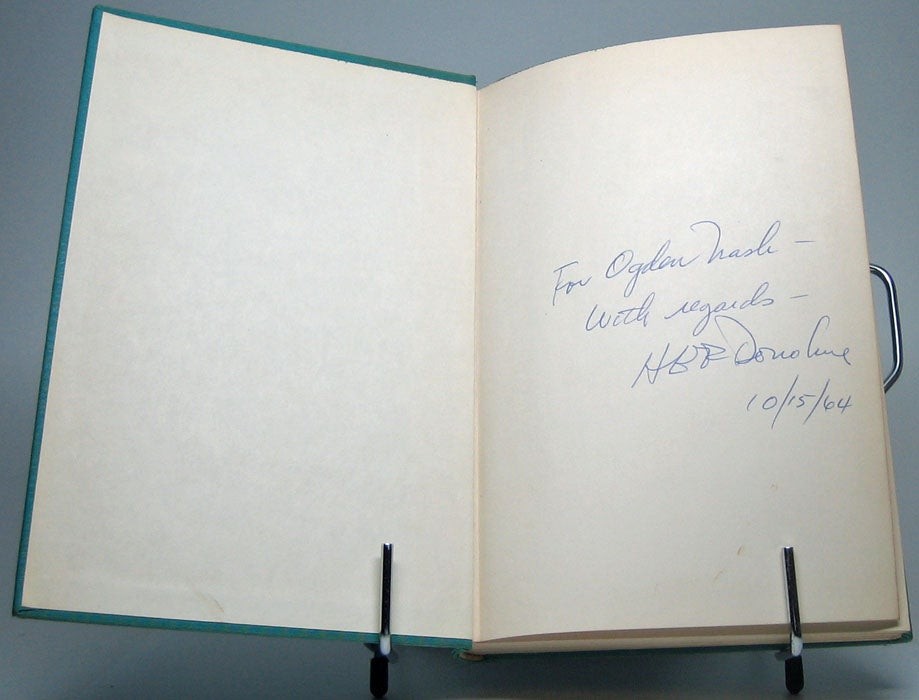 For Ogden Nash –
With regards –
HEF Donohue
10/15/64